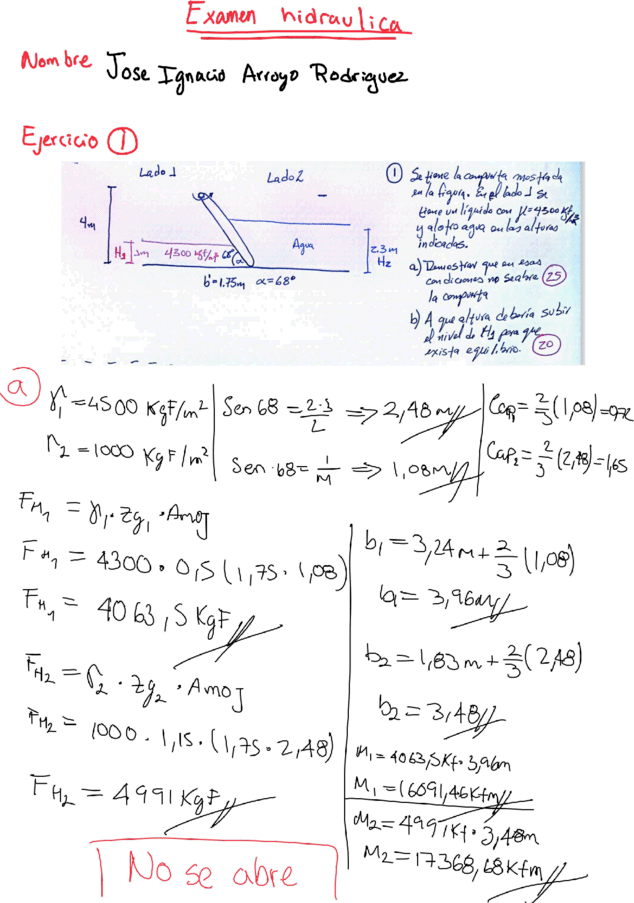 Examen hidraulica
Nombre Jose Ignacio Arroyo Rodriguez
Ejercicio ①
Lado 1
Lado 2
4m
H1
1m
4300 kgf/m³
68°
α
Agua
2.3m
H2
b=1.75m α=68°
① Se tiene la compuerta mostrada
en la figura. En el lado 1 se
tiene un líquido con γ=4300 Kgf/m3
y al otro agua en las alturas
indicadas.
a) Demostrar que en esas
condiciones no se abre
la compuerta
25
b) A que altura debería subir
el nivel de H1 para que
exista equilibrio.
20
a
γ1 = 4500 KgF/m²
γ2 = 1000 KgF/m²
Sen 68 = 2.3/L ⇒ 2,48 m
Sen 68 = 1/M ⇒ 1,08 m
CaP1 = 2/3 (1,08) = 0,72
CaP2 = 2/3 (2,48) = 1,65
FH1 = γ1 · zg1 · Amoj
FH1 = 4300 · 0,5 (1,75 · 1,08)
FH1 = 4063,5 KgF
FH2 = γ2 · zg2 · Amoj
FH2 = 1000 · 1,15 · (1,75 · 2,48)
FH2 = 4991 KgF
b1 = 3,24 m + 2/3 (1,08)
b1 = 3,96 m
b2 = 1,83 m + 2/3 (2,48)
b2 = 3,48
M1 = 4063,5 Kf · 3,96m
M1 = 16091,46 Kfm
M2 = 4991 Kf · 3,48m
M2 = 17368,68 Kfm
No se abre